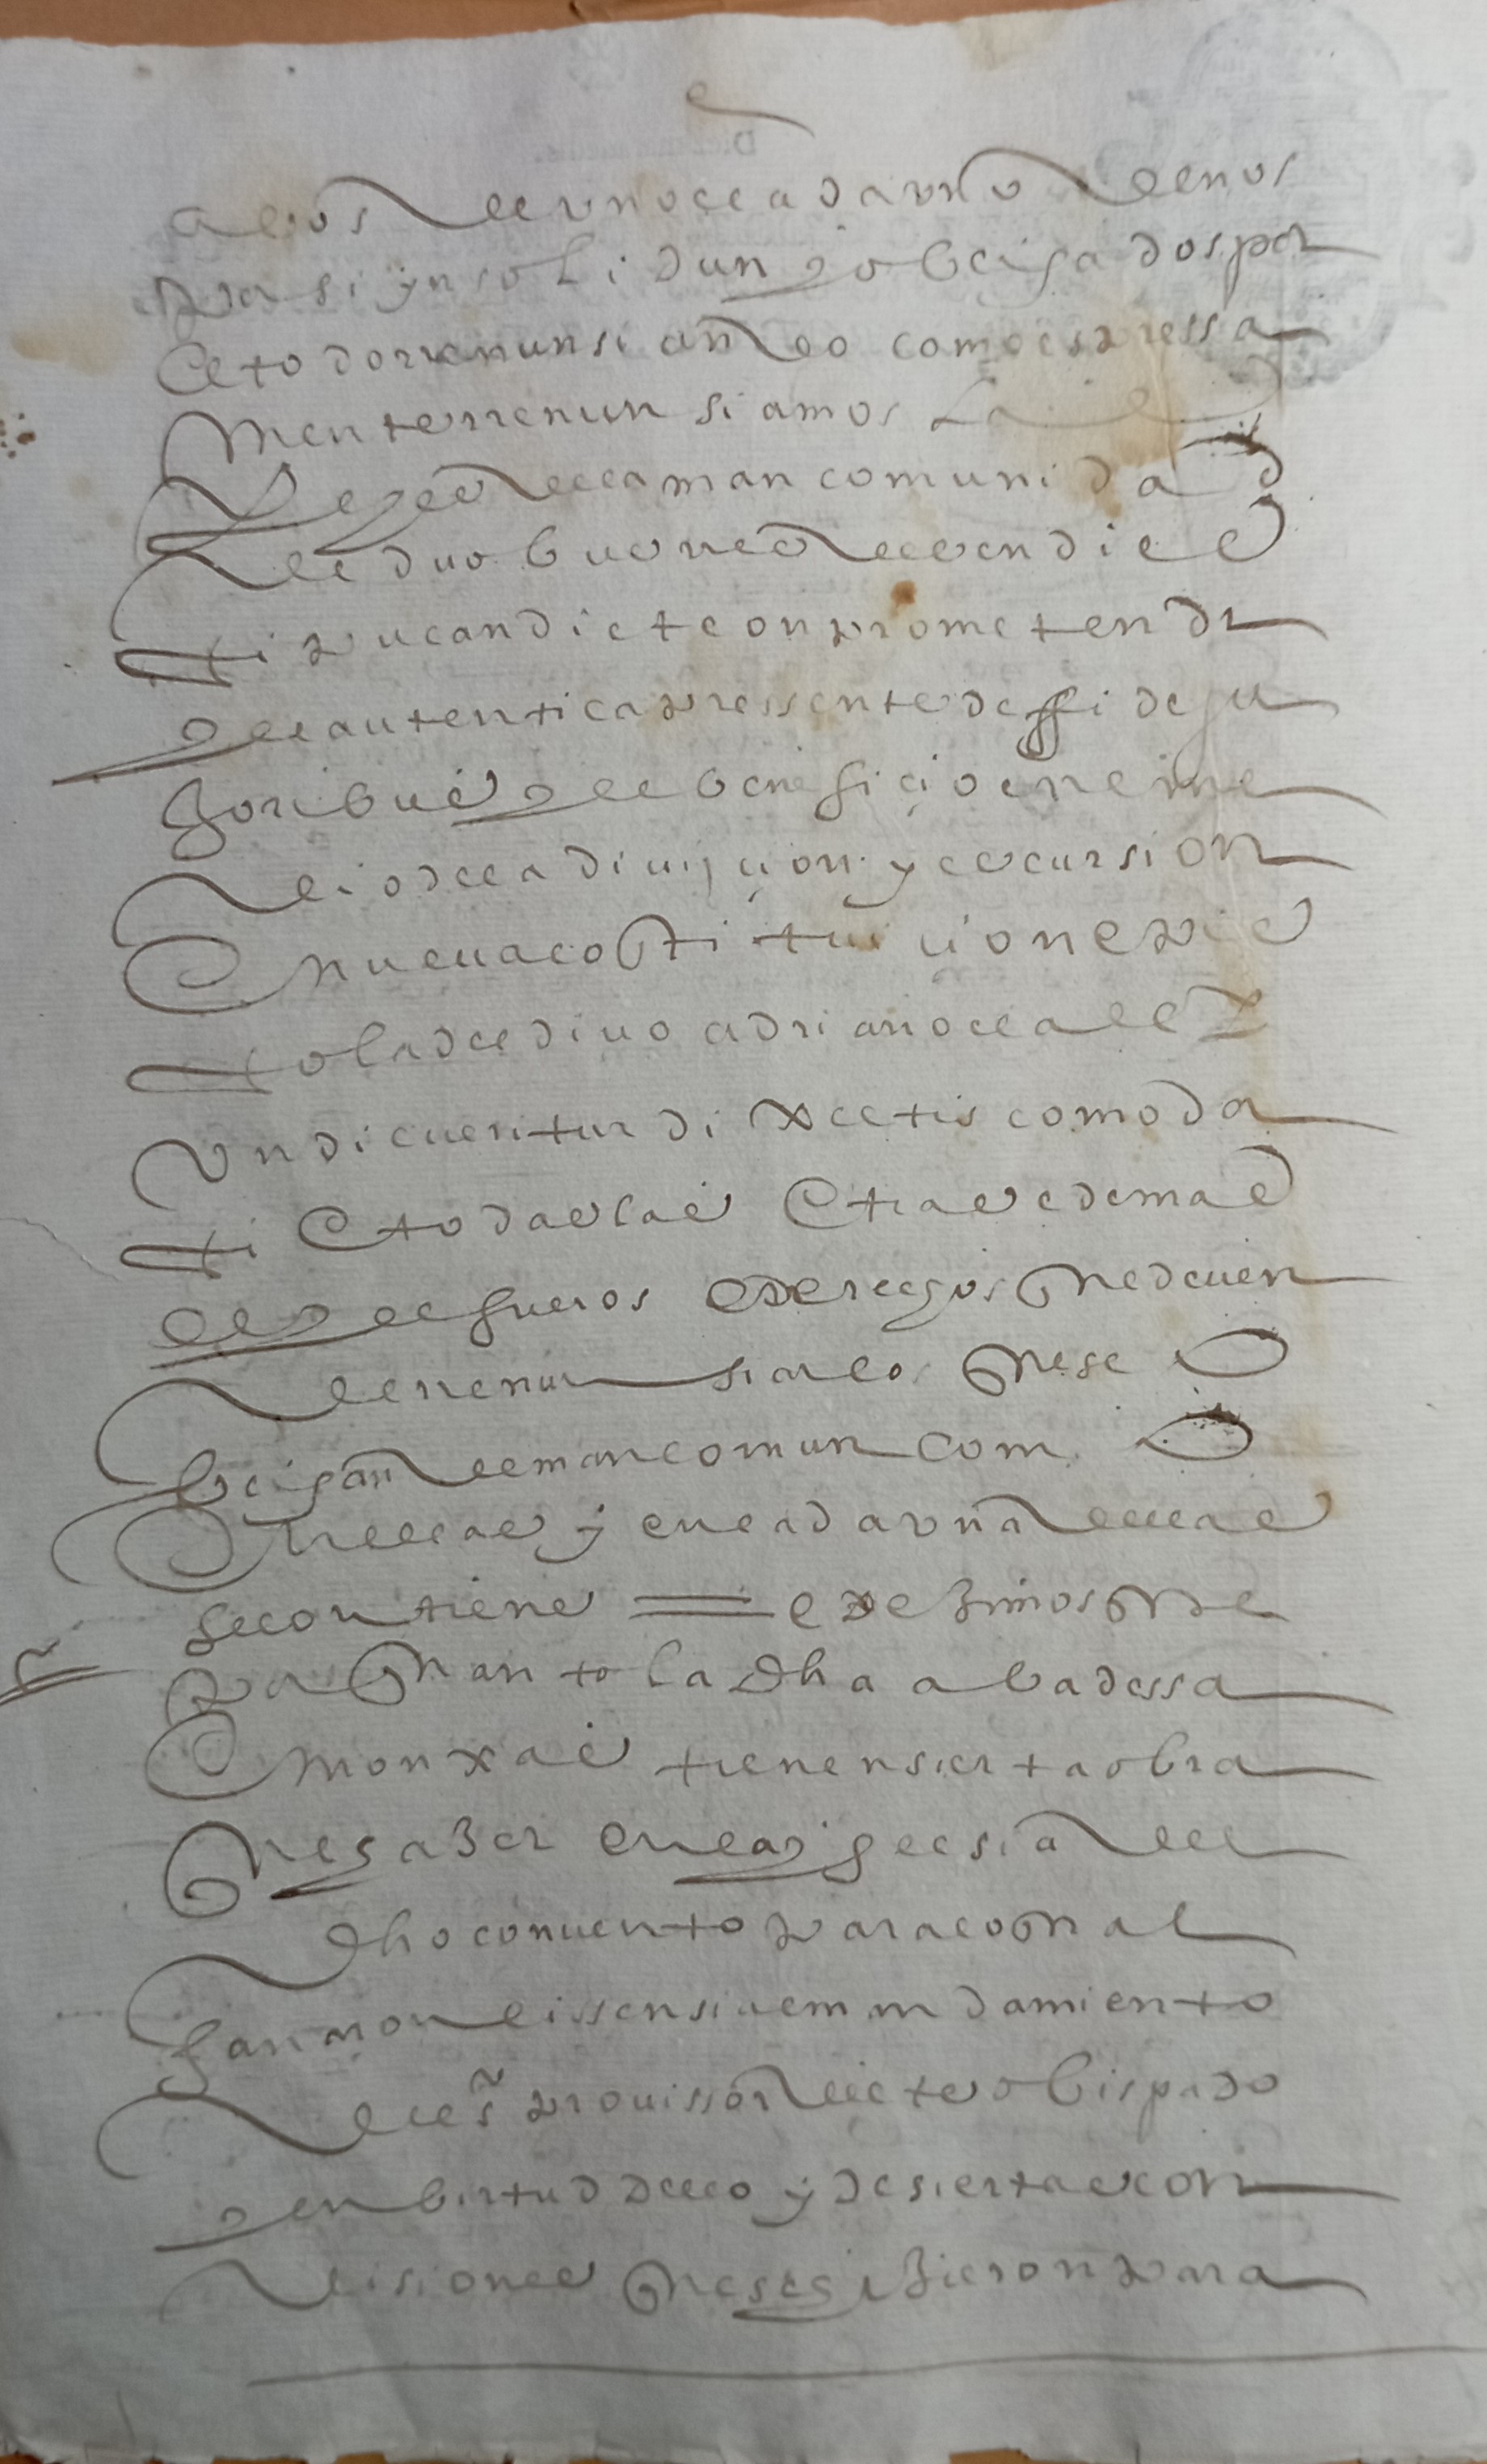 a vos de uno e cada uno de nos
por si ynsolidun y obligados por
el todo rrenunsiando como espressa
mente rrenunsiamos la
leyes de la mancomunidad
de duobus res devendis es
tipulandi et conprometendi
y el autentica pressente de ffide ju
soribus y el beneficio en rreme
dio de la diuiçion y escursion
e nueva costituiion epis
tola del divo adriano e la ley
si undicueritur dixetis comoda
ti e todas las otras e demas
leyes y fueros e derechos que deuen
de rrenunsiar los que se o
bligan de mancomun como
en ellas y en cada una dellas
se contiene = e dezimos que
por quanto la dha abadessa
e monxas tienen sierta obra
que hazer en la yglesia del
dho convento para lo qual
ganaron lissensia e mandamiento
del sr provissor deste obispado
y en birtud dello y de siertas con
disiones que se hizieron para